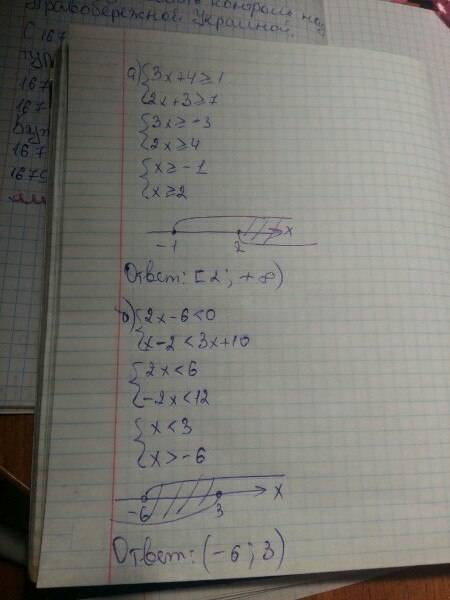 контроль над
Правобережной Украиной.
167
167
167
1679
а) { 3x+4≥1
{ 2x+3≥7
{ 3x≥-3
{ 2x≥4
{ x≥-1
{ x≥2
-1 2 x
Ответ: [2; +∞)
б) { 2x-6<0
{ x-2<3x+10
{ 2x<6
{ -2x<12
{ x<3
{ x>-6
-6 3 x
Ответ: (-6; 3)